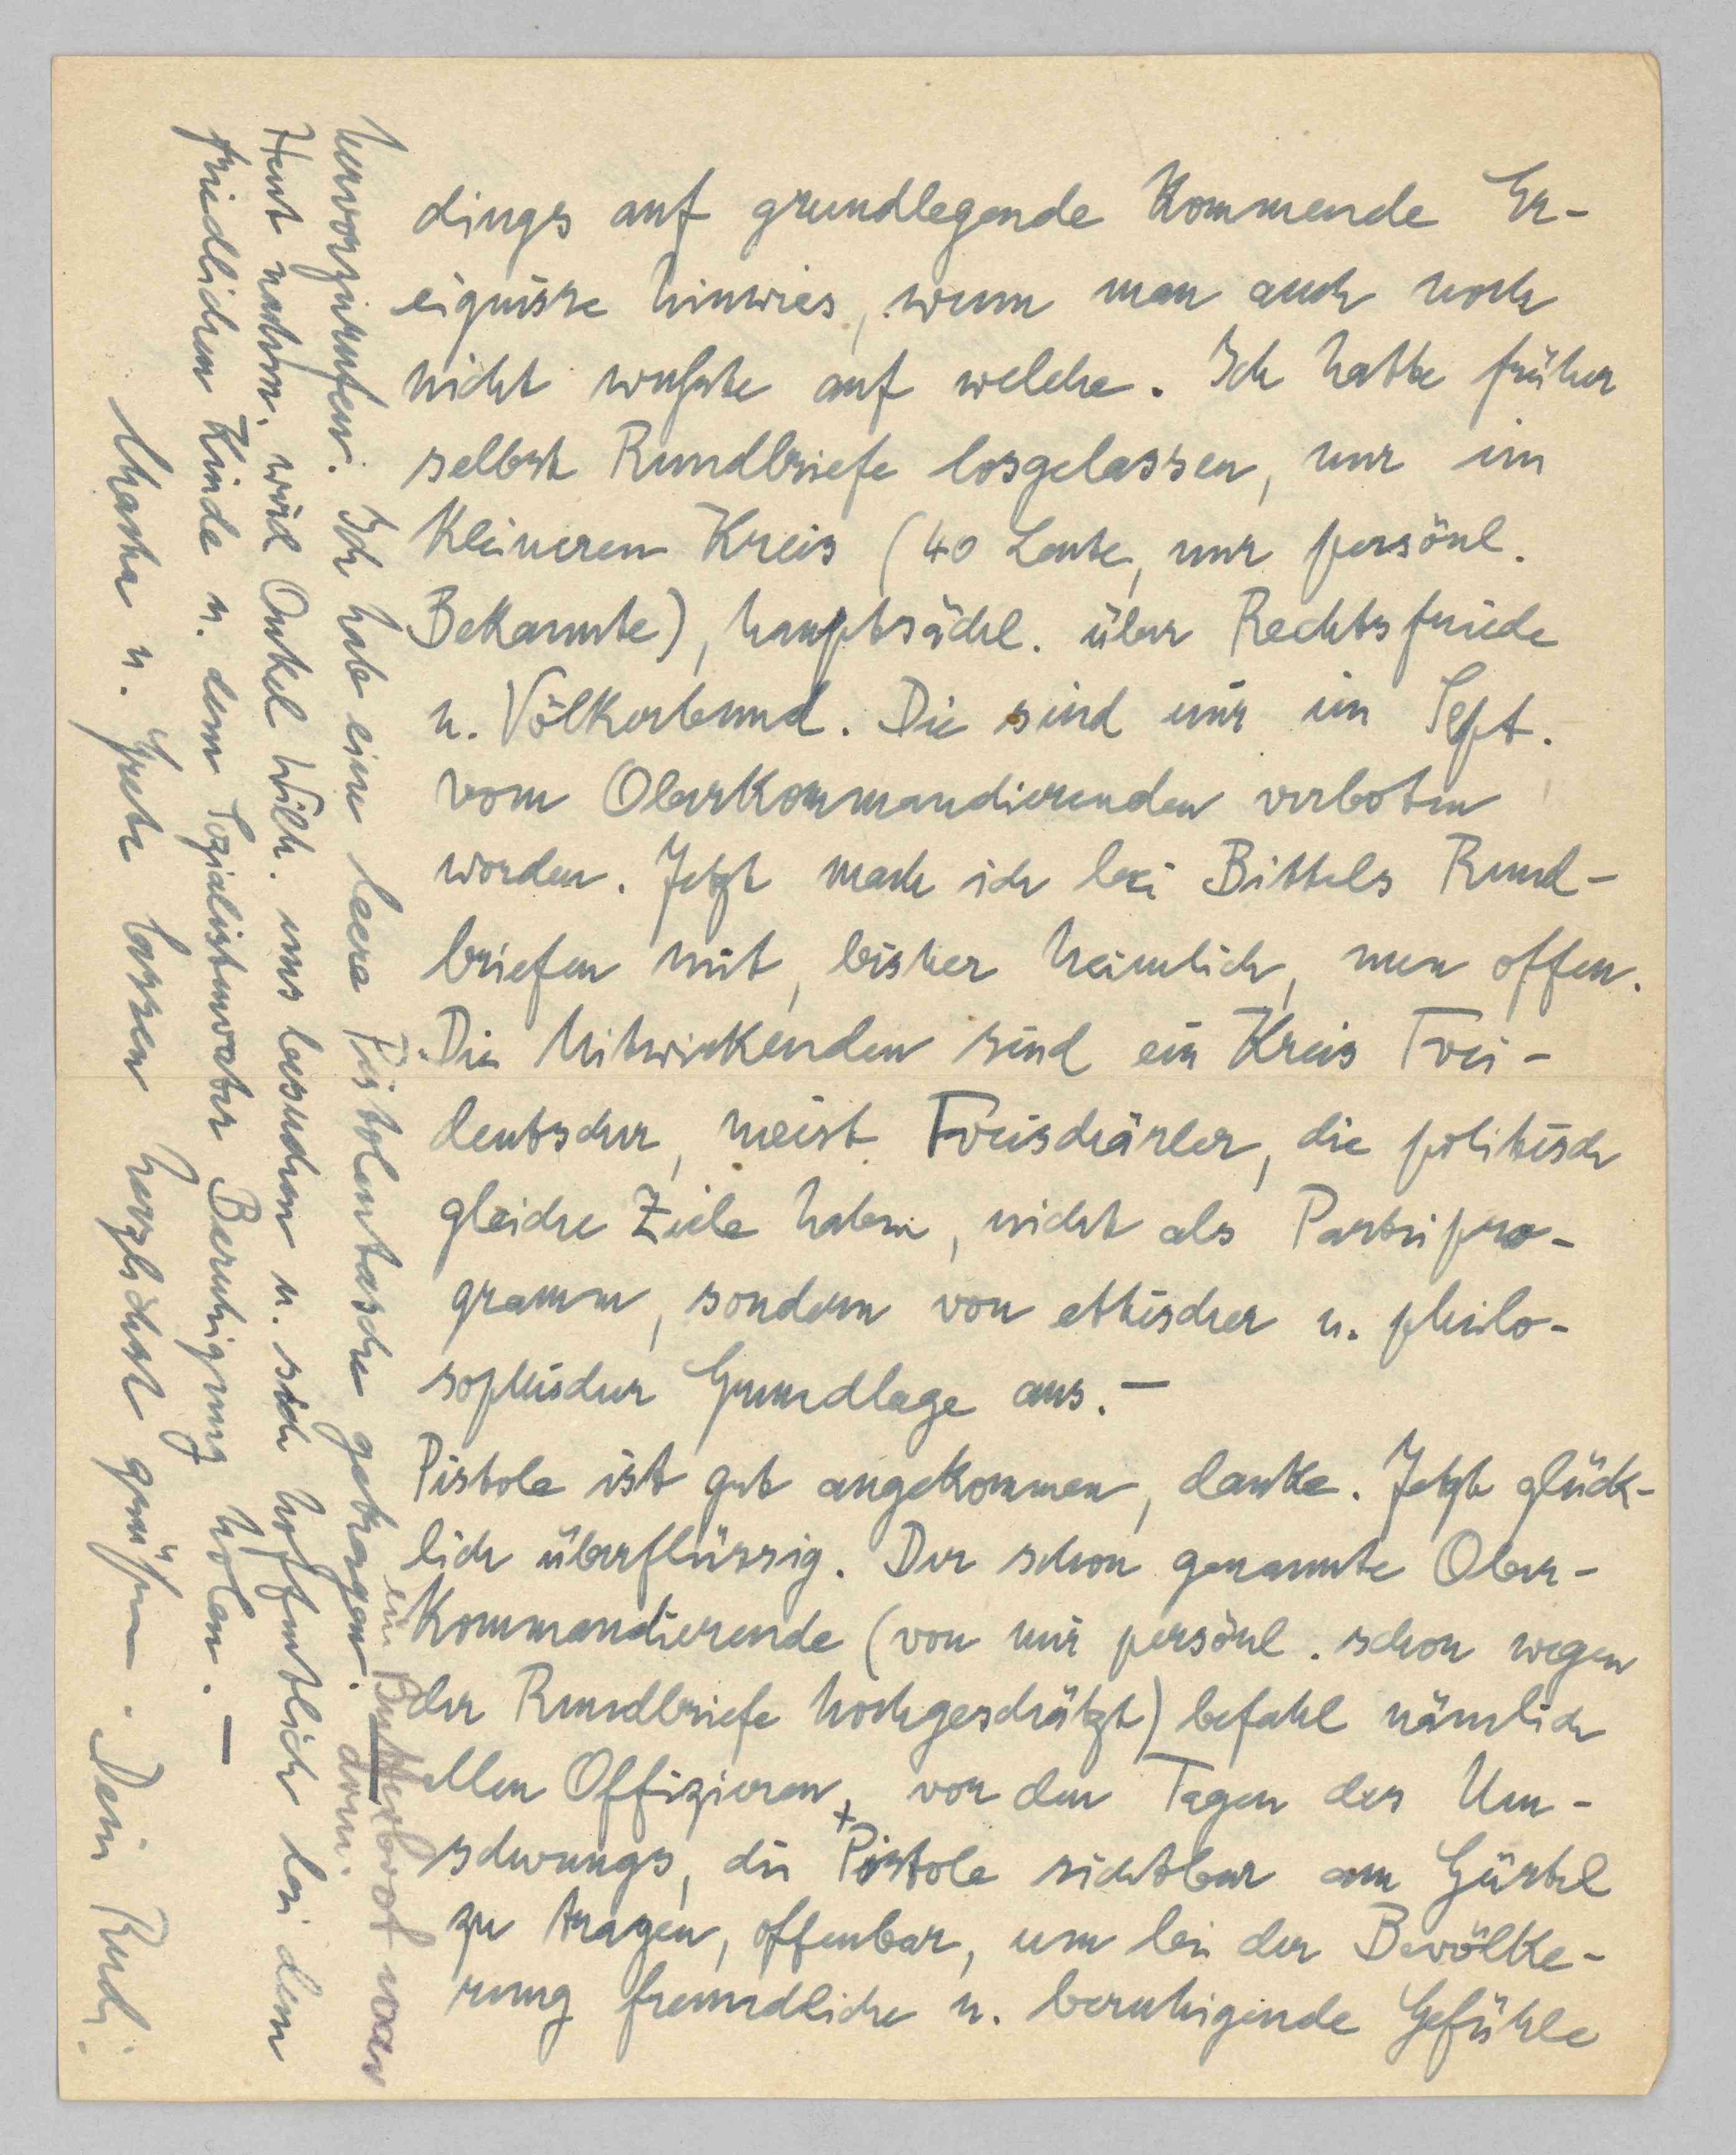 dings auf grundlegende kommende Er-
eignisse hinwies, wenn man auch noch
nicht wußte auf welche. Ich hatte früher
selbst Rundbriefe losgelassen, nur im
kleineren Kreis (40 Leute, nur persönl.
Bekannte), hauptsächl. über Rechtsfriede
u. Völkerbund. Die sind mir im Sept.
vom Oberkommandierenden verboten
worden. Jetzt mach ich bei Bittels Rund-
briefen mit, bisher heimlich, nun offen.
Die Mitwirkenden sind ein Kreis Frei-
deutscher, meist Freischärler, die politisch
gleiche Ziele haben, nicht als Parteipro-
gramm, sondern von ethischer u. philo-
sophischer Grundlage aus. —
Pistole ist gut angekommen, danke. Jetzt glück-
lich überflüssig. Der schon genannte Ober-
kommandierende (von mir persönl. schon wegen
der Rundbriefe hochgeschätzt) befahl nämlich
allen Offizieren, vor den Tagen des Um-
schwungs, die Pistole sichtbar am Gürtel
zu tragen, offenbar, um bei der Bevölke-
rung freundliche u. beruhigende Gefühle
hervorzurufen. Ich habe eine leere Pistolentasche getragen.
ein Butterbrot war
drin.
Heut nachm. wird Onkel Wilh. uns besuchen u. sich hoffentlich bei dem
friedlichen Kinde u. dem Sozialistenvater Beruhigung holen. —
Mascha u. Grete lassen herzlichst grüßen. Dein Rudi.